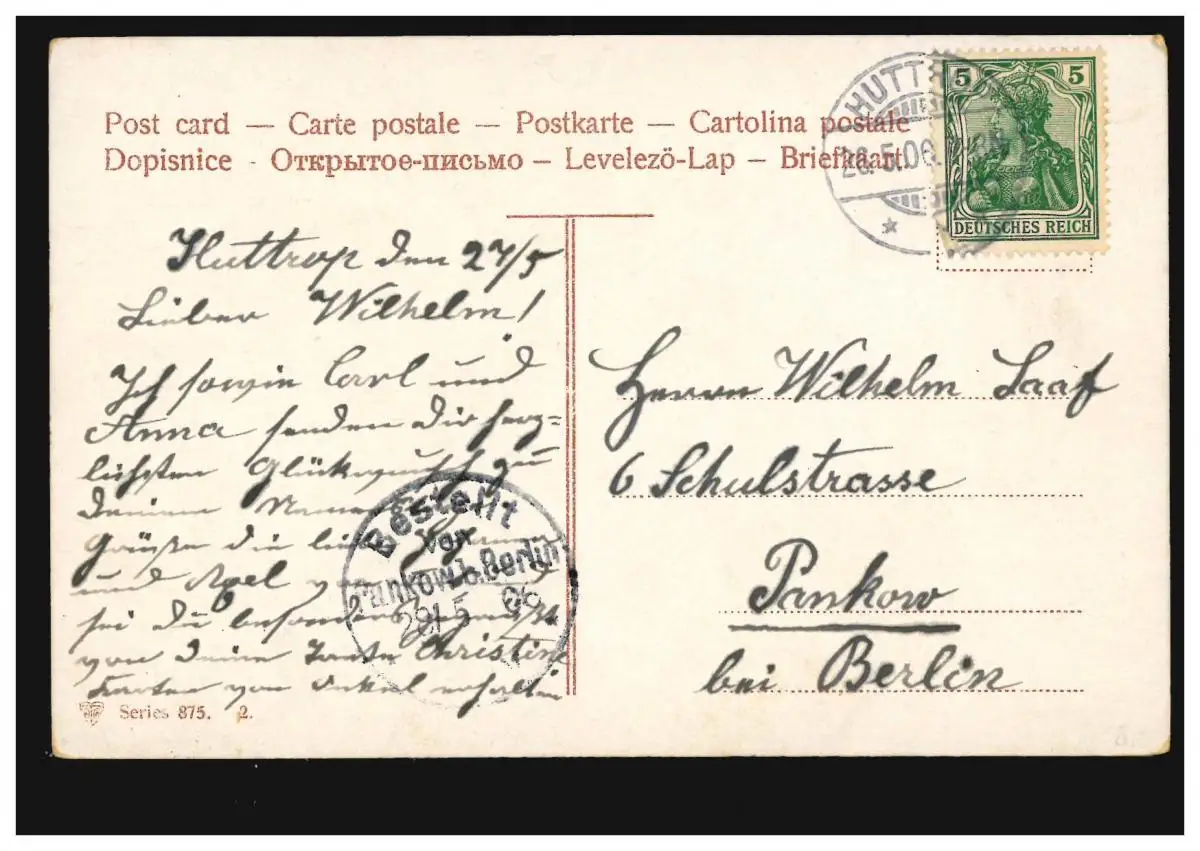 Post card — Carte postale — Postkarte — Cartolina postale
Dopisnice - Открытое-письмо – Levelező-Lap — Briefkaart.
HUTTR
28.5.06.
5 5
DEUTSCHES REICH
Huttrop den 27/5
Lieber Wilhelm!
Ich sowie Carl und
Anna senden dir herz-
lichsten Glückwunsch zu
deinem Namen
Grüße die lieben
und
sei du besonders gegrüßt
von deine Tante Christine
Karten von Onkel erhalten
Bestellt
von
Pankow b. Berlin
29/.5 06
Herrn Wilhelm Saaf
6 Schulstrasse
Pankow
bei Berlin
Series 875. 2.